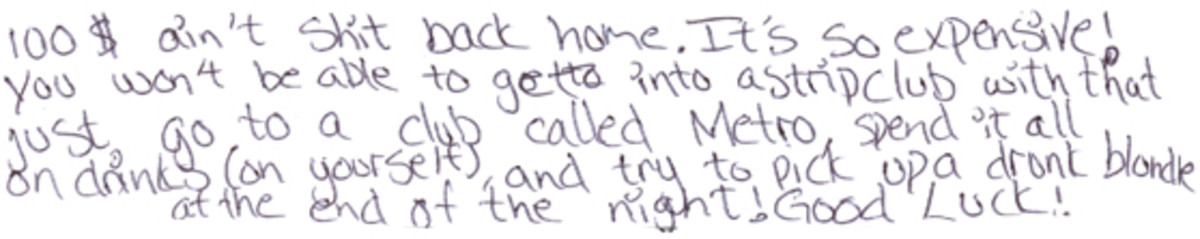 100 $ ain't shit back home. It's so expensive!
you won't be able to getto into a stripclub with that
just, go to a club called Metro, spend it all
on drinks (on yourself), and try to pick up a dronk blonde
at the end of the night! Good Luck!